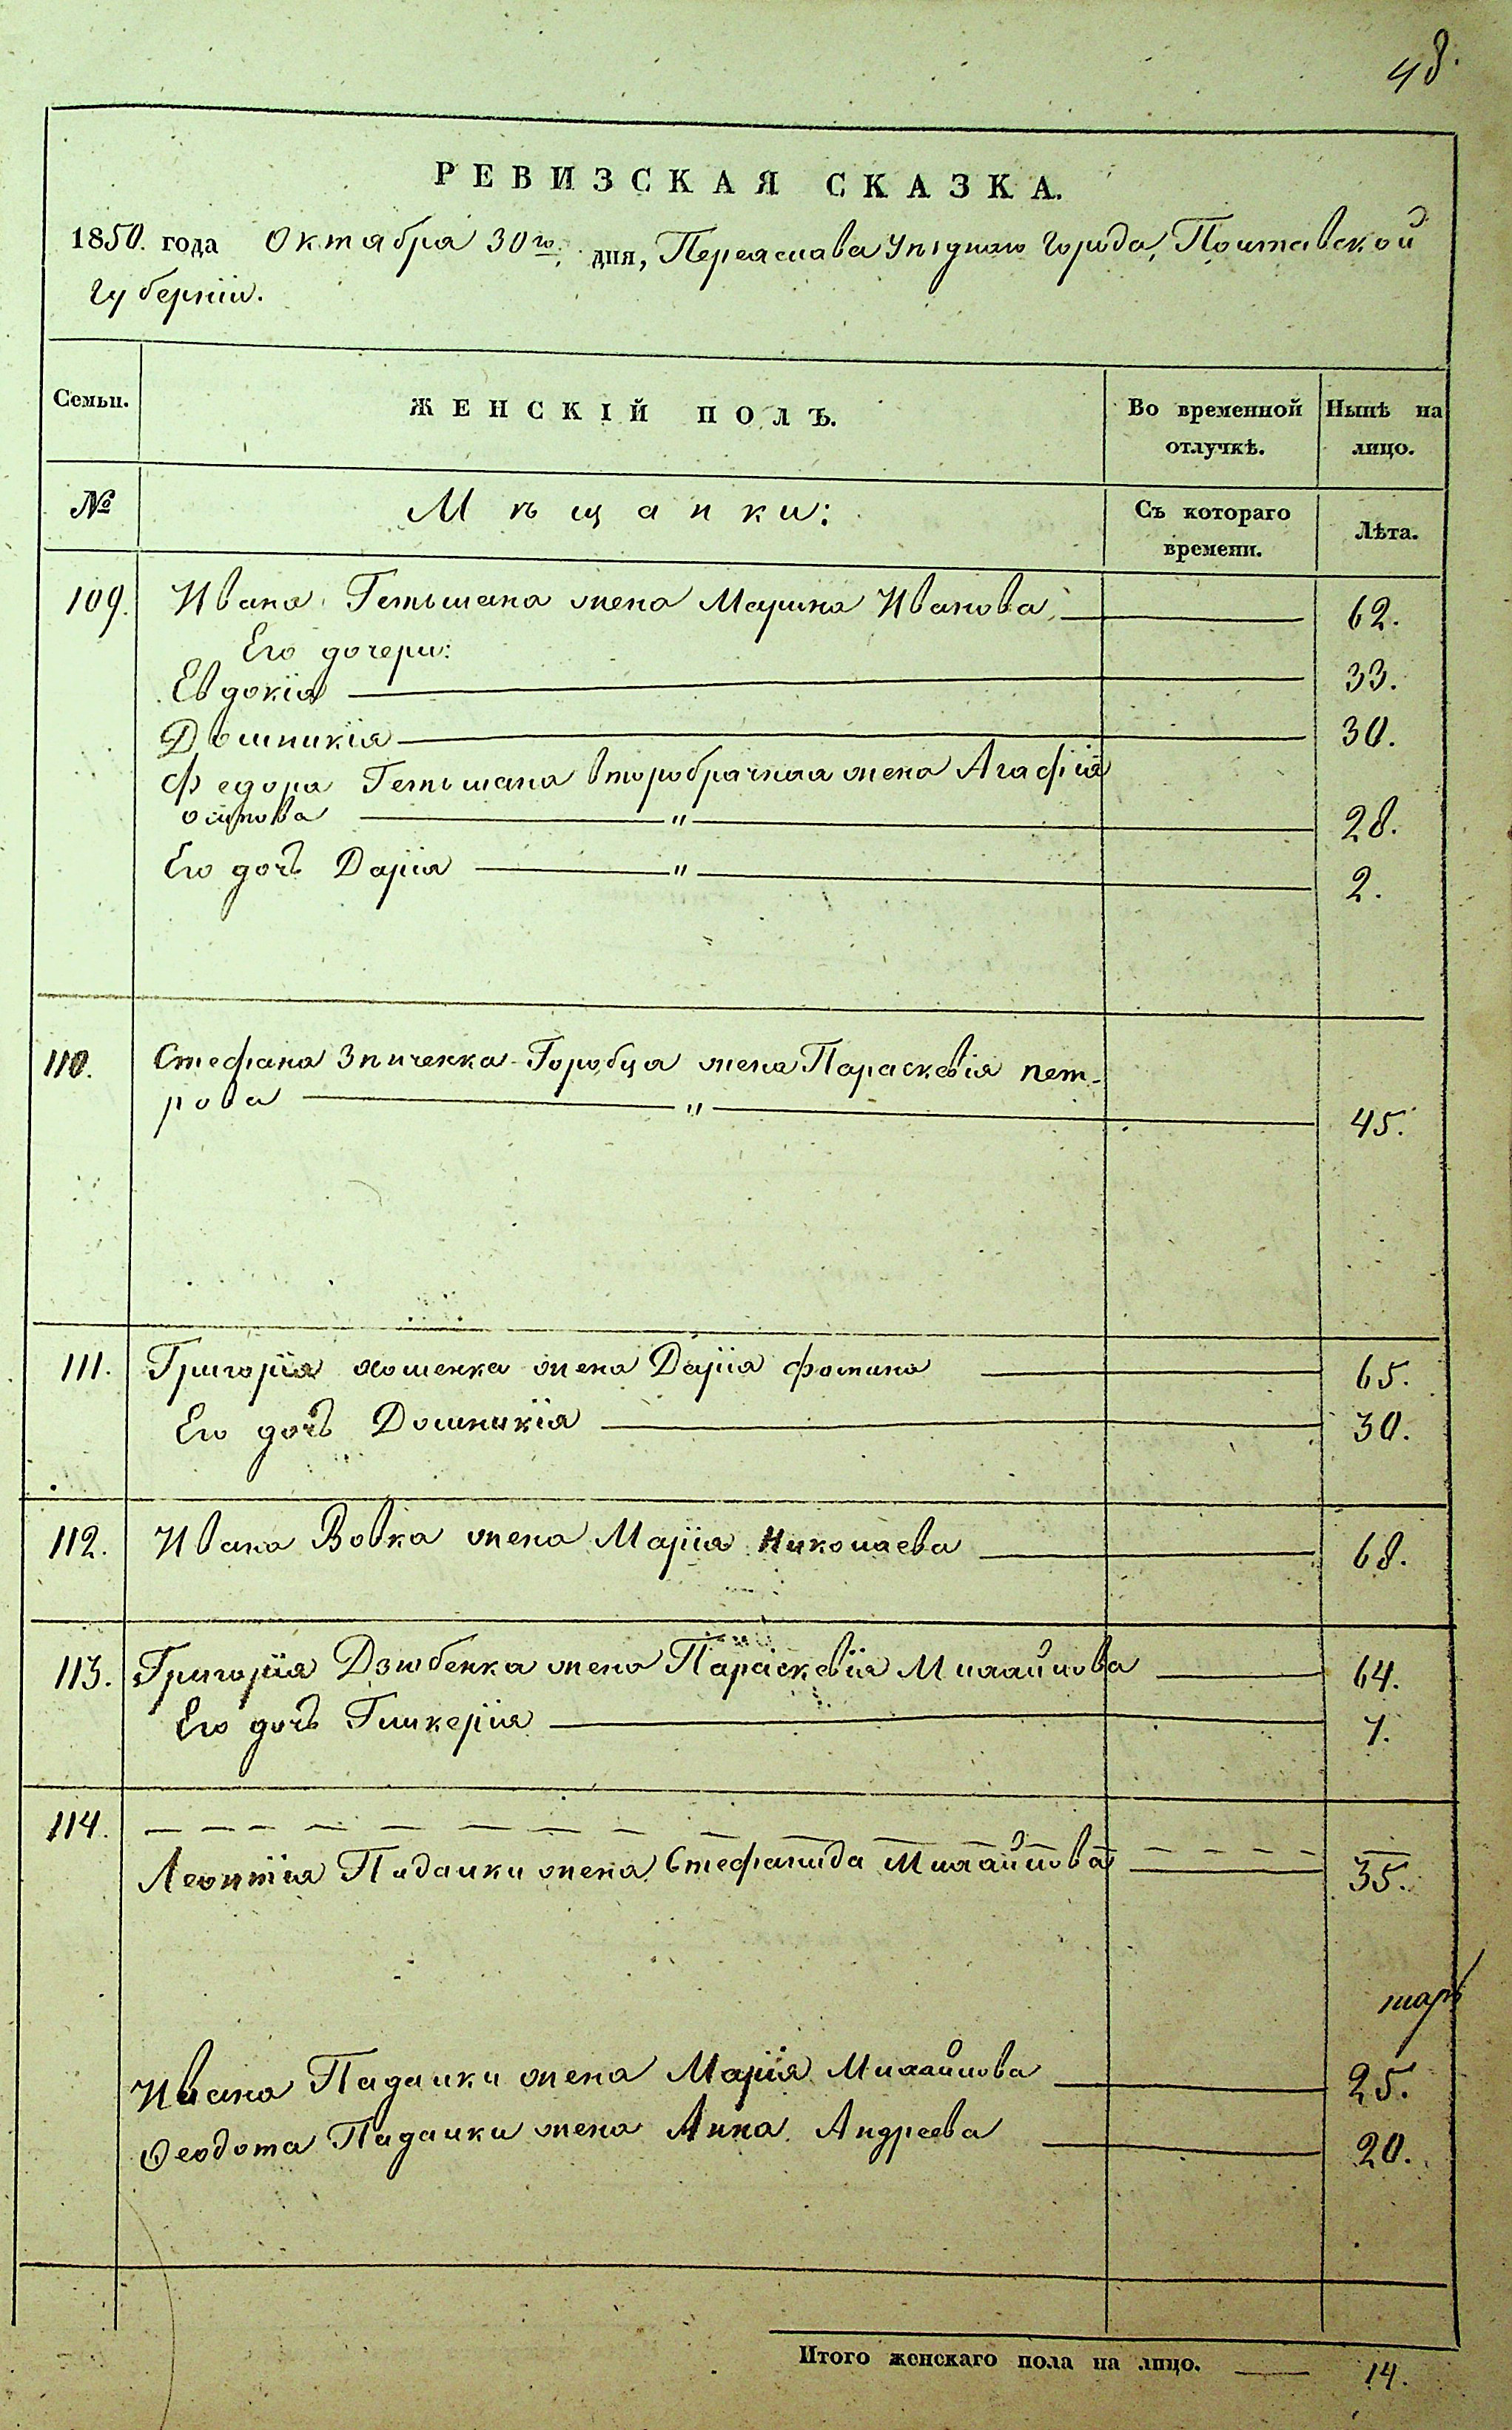 48.
РЕВИЗСКАЯ СКАЗКА.
1850. года Октября 30го. дня, Переяслава Уѣзднаго Города, Полтавской
Губерніи.
Семьи. ЖЕНСКІЙ ПОЛЪ. Во временной отлучкѣ. Нынѣ на лицо.
№ Мѣщанки: Съ котораго времени. Лѣта.
109. Ивана Гетьмана жена Марина Иванова 62.
Его дочери:
Евдокія 33.
Домникія 30.
Федора Гетьмана второбрачная жена Агафія
осипова " 28.
Его дочь Дарія " 2.
110. Стефана Зпиченка-Горобца жена Параскевія пет-
рова " 45.
111. Григорія жена Дарія фомина 65.
Его дочь Домникія 30.
112. Ивана Вовка жена Марія Николаева 68.
113. Григорія Дзюбенка жена Параскевія Михайлова 64.
Его дочь Гликерія 7.
114.
Леонтія Падалки жена Стефанида Михайлова 35.
Ивана Падалки жена Марія Михайлова 25.
Ѳеодота Падалки жена Анна Андреева 20.
Итого женскаго пола на лицо. 14.